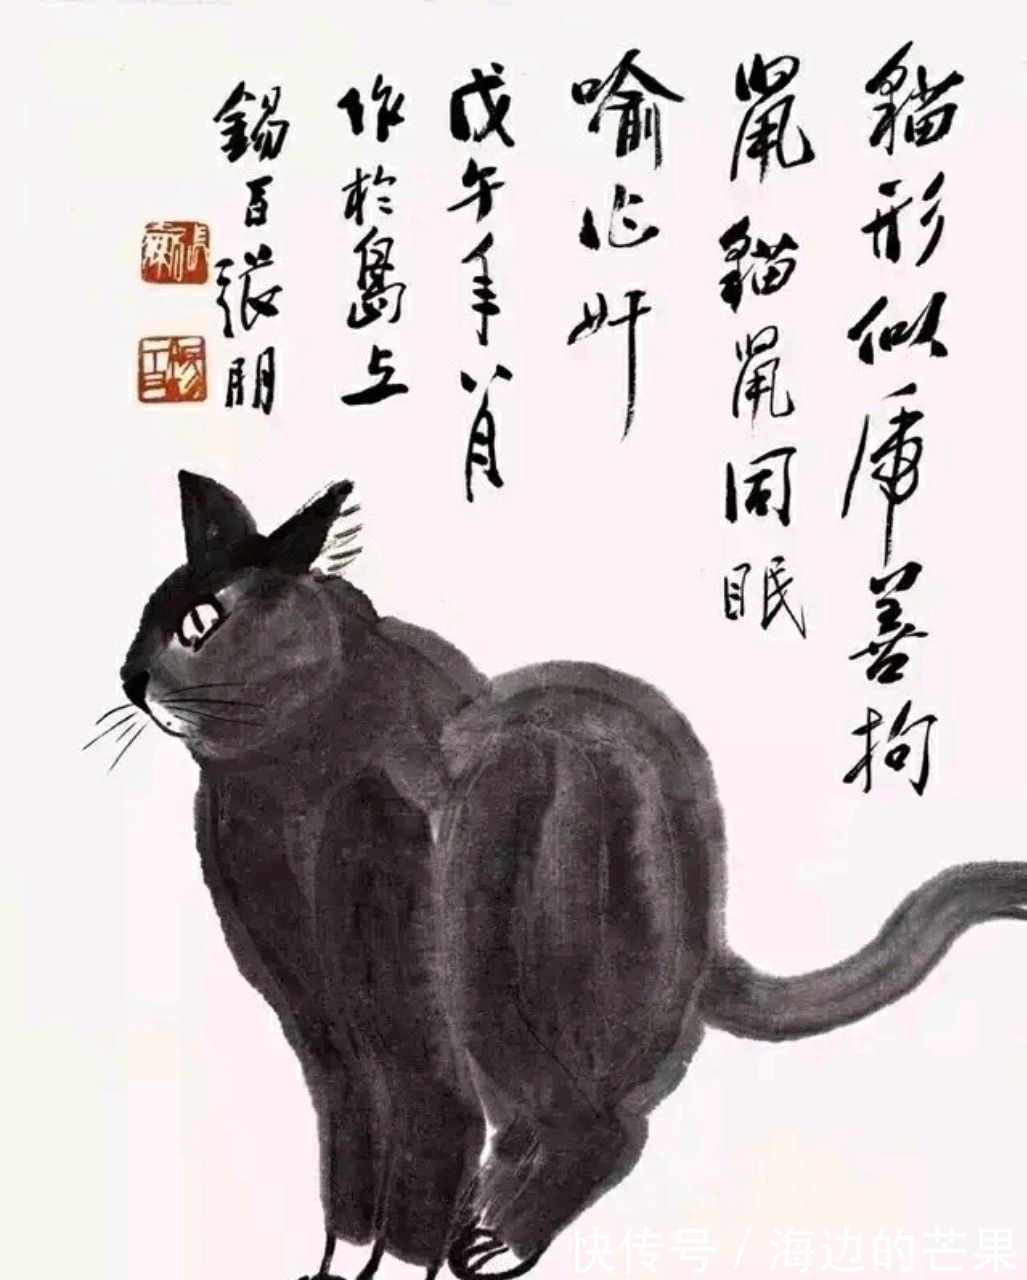 貓形似虎善拘
鼠貓鼠同眠
喻奸
戊午年八月
作於島上
錫百張朋
快传号 / 海边的芒果